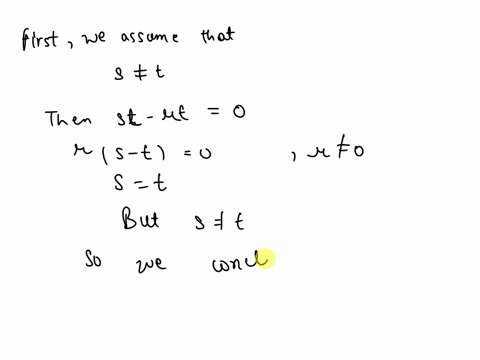 First, we assume that
s ≠ t
Then st - rt = 0
r (s-t) = 0 , r ≠ 0
s = t
But s ≠ t
So we concl